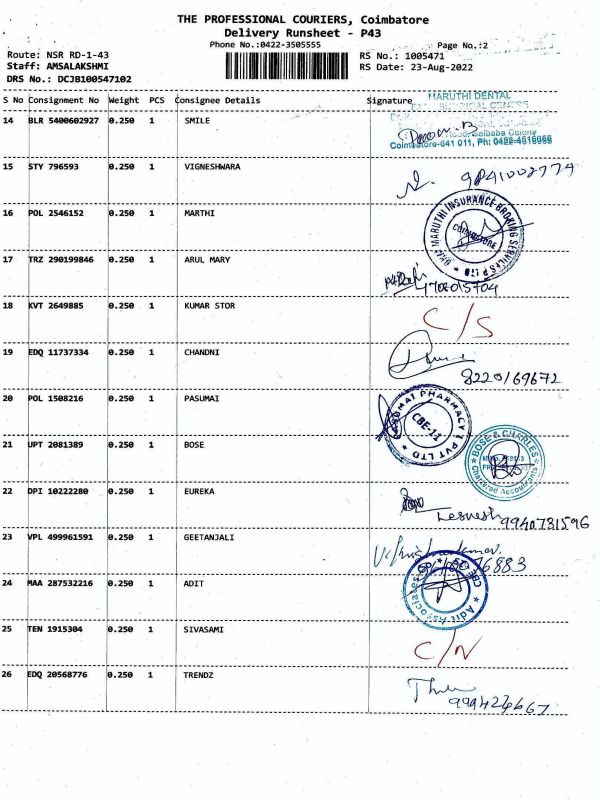 THE PROFESSIONAL COURIERS, Coimbatore
Delivery Runsheet - P43
Phone No.:0422-3505555
Page No.:2
Route: NSR RD-1-43
RS No.: 1005471
Staff: AMSALAKSHMI
RS Date: 23-Aug-2022
DRS No.: DCJB100547102
S No Consignment No Weight PCS Consignee Details Signature
MARUTHI DENTAL
14 BLR 5400602927 0.250 1 SMILE
Saibaba Colony
Coimbatore-641 011, Ph: 0422-4516966
15 STY 796593 0.250 1 VIGNESHWARA
9841002774
16 POL 2546152 0.250 1 MARTHI
MARUTHI INSURANCE BROKING SERVICES P LTD
COIMBATORE
17 TRZ 290199846 0.250 1 ARUL MARY
18 KVT 2649885 0.250 1 KUMAR STOR
C/S
19 EDQ 11737334 0.250 1 CHANDNI
8220169672
20 POL 1508216 0.250 1 PASUMAI
PHARMACY PVT LTD
CBE-11
21 UPT 2081389 0.250 1 BOSE
BOSE & CHARLES
Chartered Accountants
22 DPI 10222280 0.250 1 EUREKA
9940781596
23 VPL 499961591 0.250 1 GEETANJALI
76883
24 MAA 287532216 0.250 1 ADIT
Adit Associates
25 TEN 1915304 0.250 1 SIVASAMI
C/N
26 EDQ 20568776 0.250 1 TRENDZ